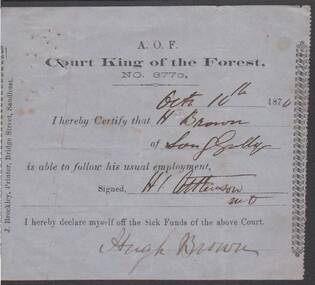 A. O. F.
Court King of the Forest,
NO. 3770,
Octr 10th 1876
I hereby Certify that H Brown
of Long Gully
is able to follow his usual employment,
Signed,
I hereby declare myself off the Sick Funds of the above Court.
Hugh Brown
J. Brockley, Printer, Bridge Street, Sandhurst.